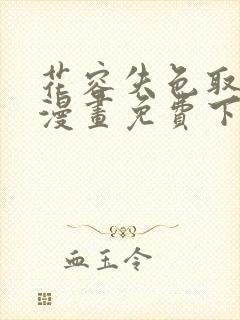 花容失色取
漫畫免費下
血玉令